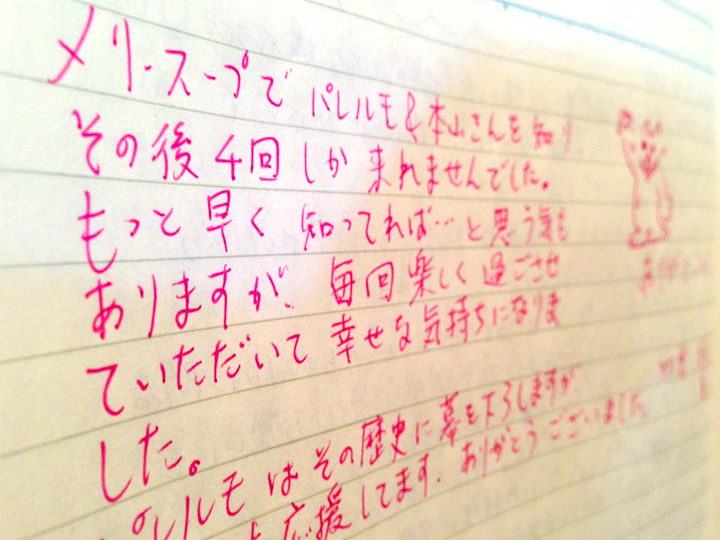 メリースープで パレルモ&本山さんを知り
その後 4回しか 来れませんでした。
もっと早く 知ってれば…と思う気も
ありますが、毎回楽しく過ごさせ
ていただいて 幸せな気持ちになりま
した。
パレルモはその歴史に墓を下ろしますが
応援してます。ありがとうございました